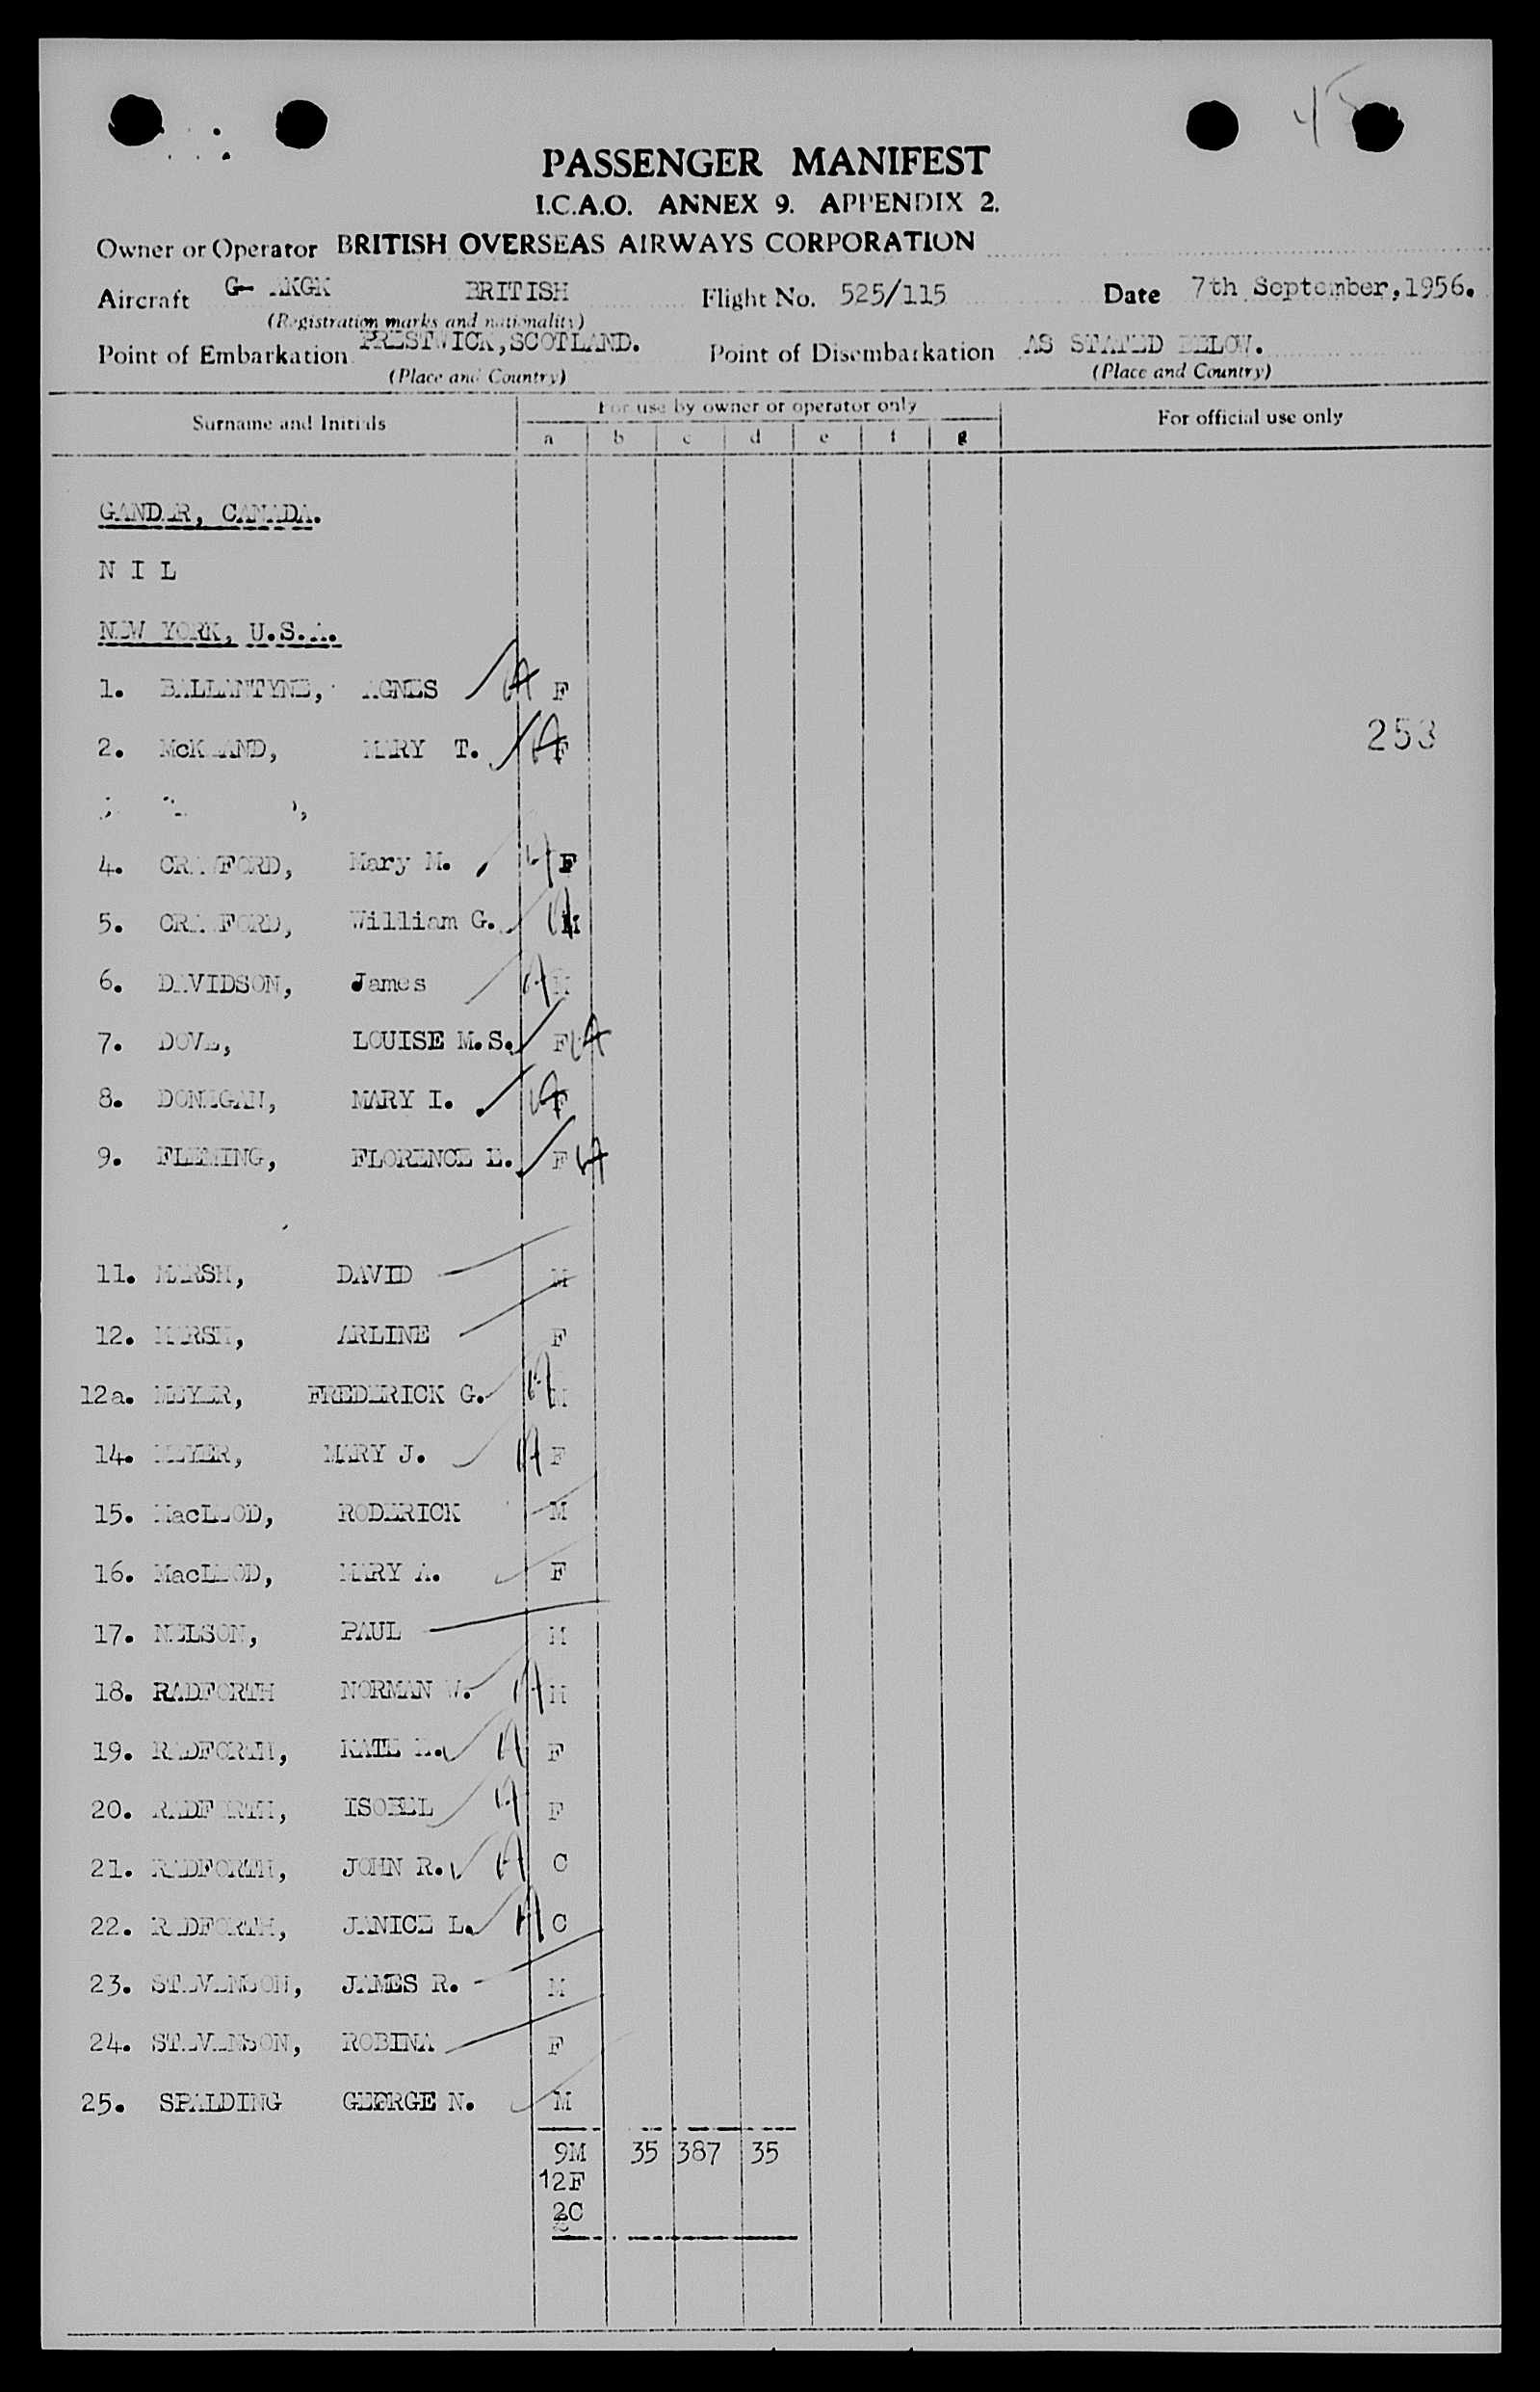 45
PASSENGER MANIFEST
I.C.A.O. ANNEX 9. APPENDIX 2.
Owner or Operator BRITISH OVERSEAS AIRWAYS CORPORATION
Aircraft G- AKGK BRITISH Flight No. 525/115 Date 7th September, 1956.
(Registration marks and nationality)
Point of Embarkation PRESTWICK, SCOTLAND. Point of Disembarkation AS STATED BELOW.
(Place and Country) (Place and Country)
Surname and Initials For use by owner or operator only For official use only
a b c d e f g
GANDER, CANADA.
N I L
NEW YORK, U.S.A.
1. BALLANTYNE, AGNES F
2. McKEAND, MARY T. F
253
4. CRAWFORD, Mary M. F
5. CRAWFORD, William G. M
6. DAVIDSON, James M
7. DOVE, LOUISE M.S. F
8. DONEGAN, MARY I. F
9. FLEMING, FLORENCE E. F
11. MARSH, DAVID M
12. MARSH, ARLINE F
12a. MEYER, FREDERICK G. M
14. MEYER, MARY J. F
15. MacLEOD, RODERICK M
16. MacLEOD, MARY A. F
17. NELSON, PAUL M
18. RADFORTH NORMAN W. M
19. RADFORTH, KATE F
20. RADFORTH, ISOBEL F
21. RADFORTH, JOHN R. C
22. RADFORTH, JANICE L. C
23. STEVENSON, JAMES R. M
24. STEVENSON, ROBINA F
25. SPALDING GEORGE N. M
9M 35 387 35
12F
2C